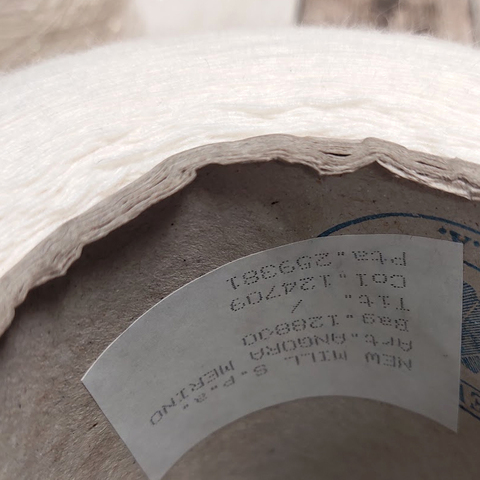 NEW MILL S.P.a.
Art.ANGORA MERINO
Bag.128830
Tit. /
Col.124709
Pta.259381